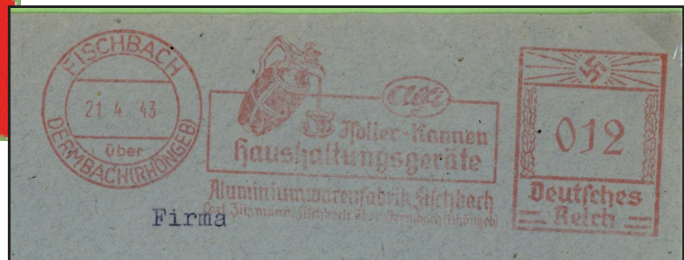 FISCHBACH
21.4.43
über
DERMBACH (RHÖNGEB)
Isolier-Kannen
Haushaltungsgeräte
Aluminiumwarenfabrik Fischbach
Fischbach über Dermbach (Rhöngeb)
012
Deutsches
Reich
Firma